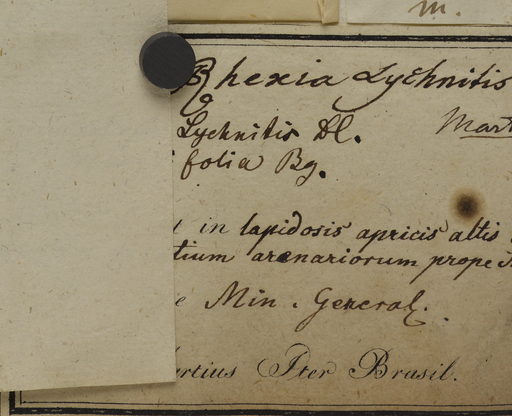 m.
Rhexia Lychnitis
Lychnitis Dl. Mart
folia Bg.
t in lapidosis apricis altis
tium arenariorum prope
e Min. General.
rtius Iter Brasil.